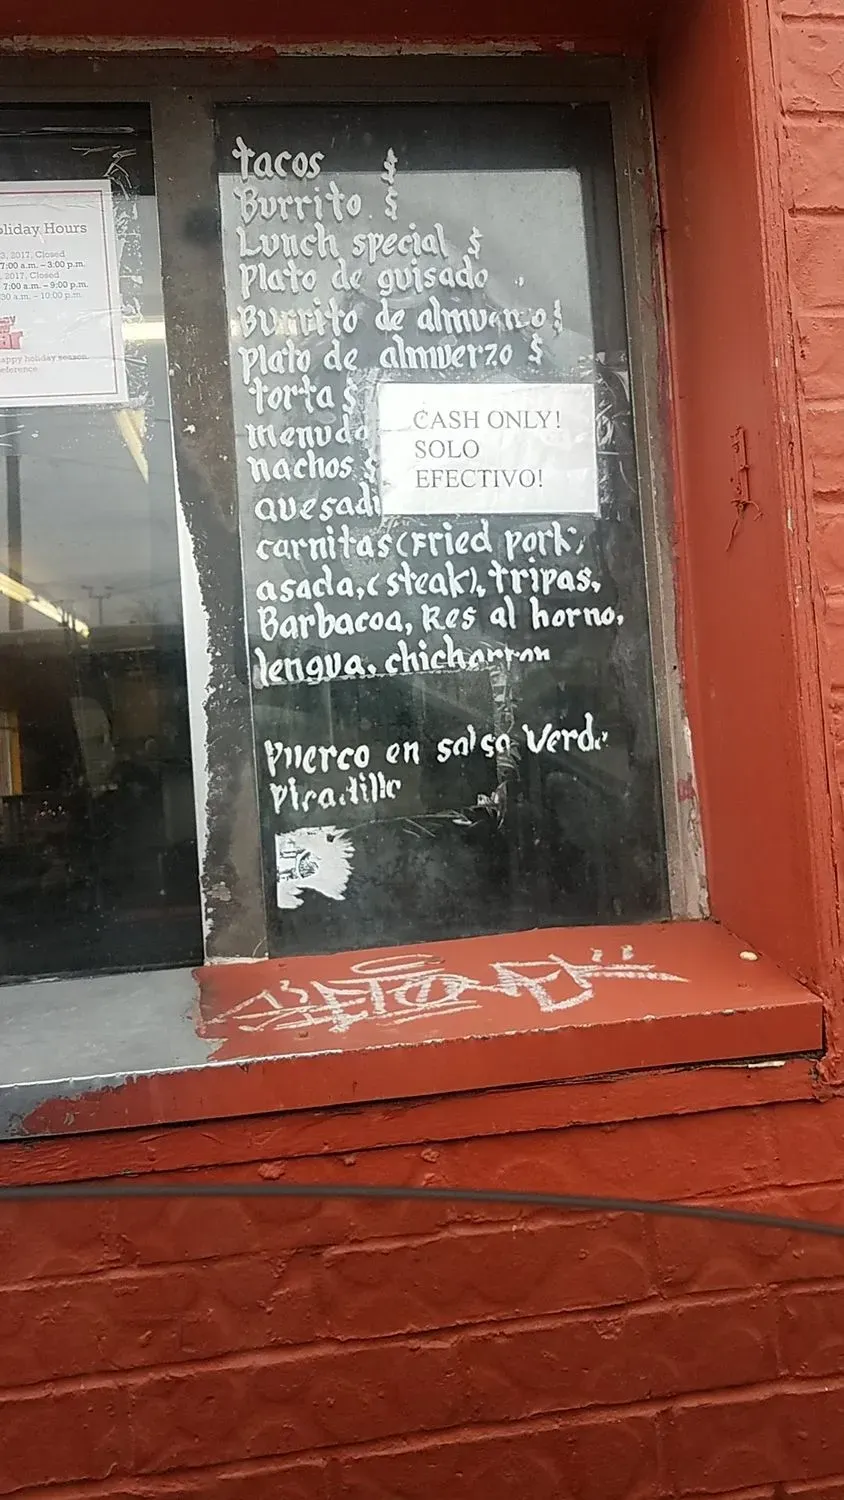 oliday Hours
3, 2017, Closed
7:00 a.m. – 3:00 p.m.
2017, Closed
7:00 a.m. – 9:00 p.m.
30 a.m. – 10:00 p.m.
appy holiday season.
eference.
tacos $
Burrito $
Lunch special $
plato de guisado
Burrito de almuerzo $
plato de almuerzo $
torta $
menudo
nachos $
quesadi
CASH ONLY!
SOLO
EFECTIVO!
carnitas (Fried pork),
asada, (steak), tripas,
Barbacoa, Res al horno,
lengua, chicharron
Puerco en salsa Verde
Picadillo